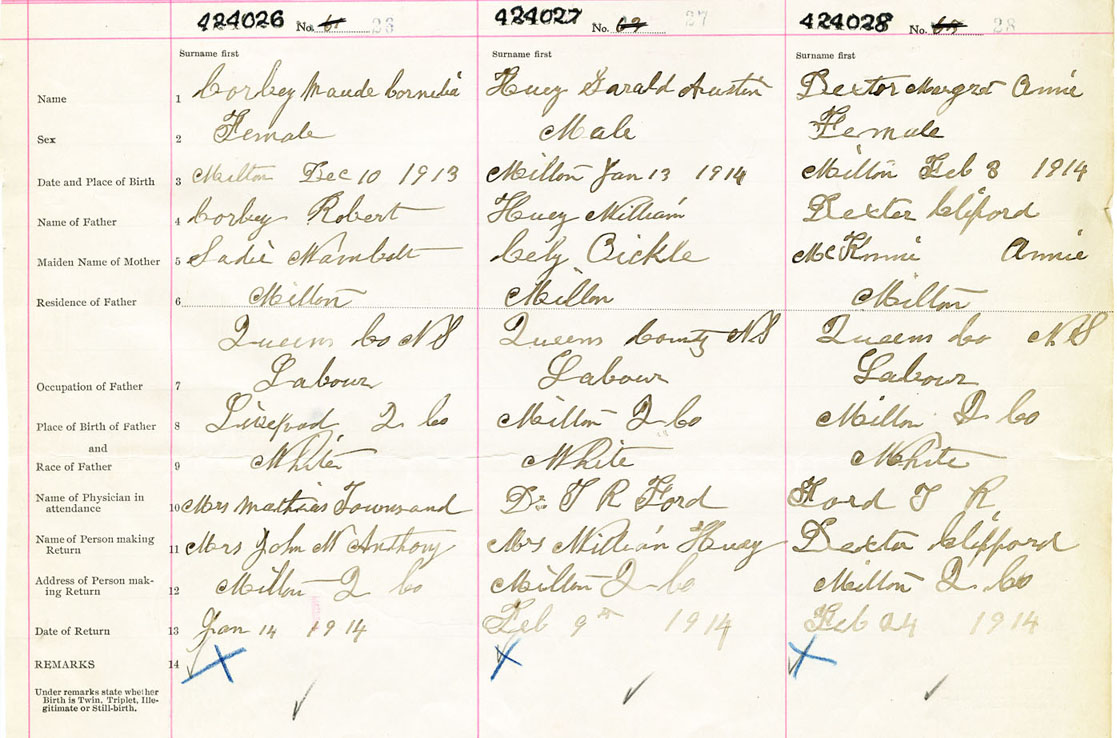 424026 No. 61 26 424027 No. 62 27 424028 No. 63 28
Surname first Surname first Surname first
Name 1 Corbey Maude Cornelia Huey Garald Austin Dexter Margret Annie
Sex 2 Female Male Female
Date and Place of Birth 3 Milton Dec 10 1913 Milton Jan 13 1914 Milton Feb 8 1914
Name of Father 4 Corbey Robert Huey William Dexter Cliford
Maiden Name of Mother 5 Sadie Wambolt Cely Bickle McKinnie Annie
Residence of Father 6 Milton Milton Milton
Queens Co NS Queens County NS Queens Co NS
Occupation of Father 7 Labour Labour Labour
Place of Birth of Father 8 Liverpool Q Co Milton Q Co Milton Q Co
and
Race of Father 9 White White White
Name of Physician in
attendance 10 Mrs Mathias Townsand Dr T R Ford Ford T R
Name of Person making
Return 11 Mrs John W Anthony Mrs William Huey Dexter Clifford
Address of Person mak-
ing Return 12 Milton Q Co Milton Q Co Milton Q Co
Date of Return 13 Jan 14 1914 Feb 9th 1914 Feb 24 1914
REMARKS 14
Under remarks state whether
Birth is Twin, Triplet, Ille-
gitimate or Still-birth.